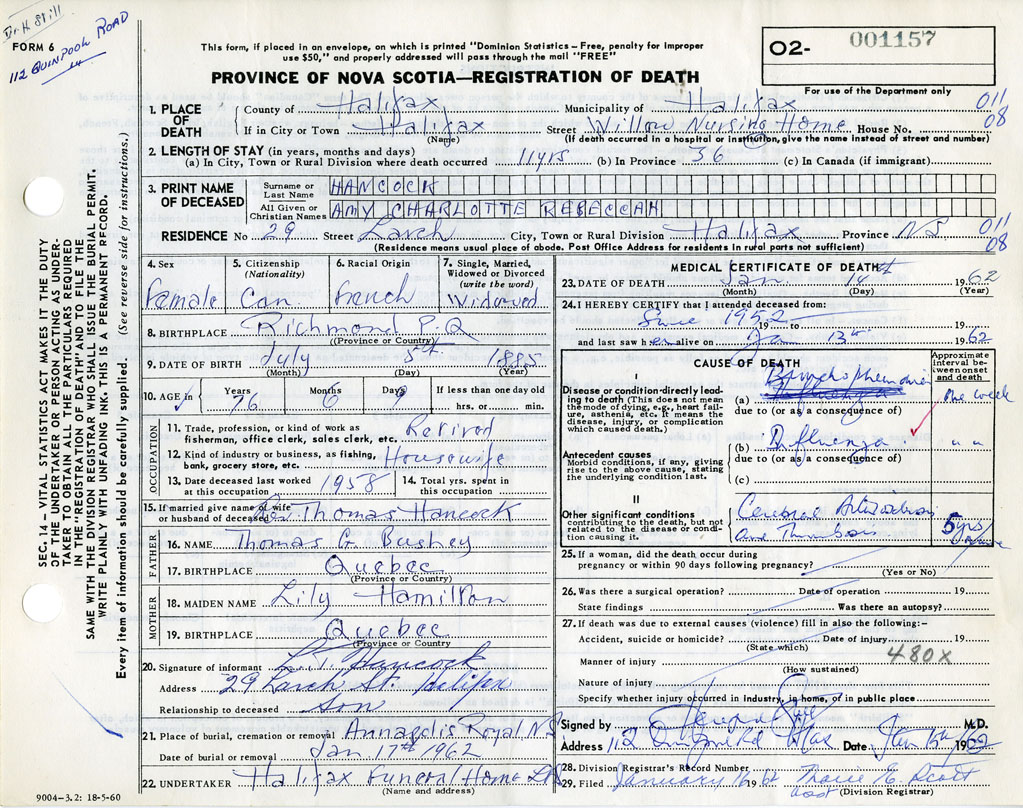 Dr. H. Still
112 QUINPOOL ROAD
FORM 6
This form, if placed in an envelope, on which is printed "Dominion Statistics – Free, penalty for improper
use $50," and properly addressed will pass through the mail "FREE"
PROVINCE OF NOVA SCOTIA—REGISTRATION OF DEATH
O2- 001157
For use of the Department only
1. PLACE OF DEATH
County of Halifax Municipality of Halifax 011
If in City or Town Halifax Street Willow Nursing Home House No. 08
(Name) (If death occurred in a hospital or institution, give the name instead of street and number)
2. LENGTH OF STAY (in years, months and days)
(a) In City, Town or Rural Division where death occurred 11 yrs (b) In Province 36 (c) In Canada (if immigrant)
3. PRINT NAME OF DECEASED
Surname or Last Name HANCOCK
All Given or Christian Names AMY CHARLOTTE REBECCAH
RESIDENCE No 29 Street Larch City, Town or Rural Division Halifax Province NS 011
08
(Residence means usual place of abode. Post Office Address for residents in rural parts not sufficient)
4. Sex
Female
5. Citizenship (Nationality)
Can.
6. Racial Origin
French
7. Single, Married, Widowed or Divorced (write the word)
Widowed
8. BIRTHPLACE Richmond P.Q
(Province or Country)
9. DATE OF BIRTH July 5th 1885
(Month) (Day) (Year)
10. AGE In Years 76 Months 6 Days 9 If less than one day old
hrs. or min.
OCCUPATION
11. Trade, profession, or kind of work as
fisherman, office clerk, sales clerk, etc. Retired
12. Kind of industry or business, as fishing,
bank, grocery store, etc. Housewife
13. Date deceased last worked
at this occupation 1958
14. Total yrs. spent in
this occupation
15. If married give name of wife
or husband of deceased Rev. Thomas Hancock
FATHER
16. NAME Thomas G. Bushey
17. BIRTHPLACE Quebec
(Province or Country)
MOTHER
18. MAIDEN NAME Lily Hamilton
19. BIRTHPLACE Quebec
(Province or Country
20. Signature of informant Hancock
Address 29 Larch St. Halifax
Relationship to deceased Son
21. Place of burial, cremation or removal Annapolis Royal NS
Date of burial or removal Jan 17th 1962
22. UNDERTAKER Halifax Funeral Home Ltd
(Name and address)
9004–3.2: 18-5-60
SEC. 14 – VITAL STATISTICS ACT MAKES IT THE DUTY
OF THE UNDERTAKER OR PERSON ACTING AS UNDER-
TAKER TO OBTAIN ALL THE PARTICULARS REQUIRED
IN THE "REGISTRATION OF DEATH" AND TO FILE THE
SAME WITH THE DIVISION REGISTRAR WHO SHALL ISSUE THE BURIAL PERMIT.
WRITE PLAINLY WITH UNFADING INK. THIS IS A PERMANENT RECORD.
Every item of information should be carefully supplied. (See reverse side for instructions.)
MEDICAL CERTIFICATE OF DEATH
23. DATE OF DEATH Jan. 14th 1962
(Month) (Day) (Year)
24. I HEREBY CERTIFY that I attended deceased from:
Since 1952 19 to 19
and last saw her alive on Jan 13th 1962
CAUSE OF DEATH
Approximate interval between onset and death
I
Disease or condition directly leading to death (This does not mean the mode of dying, e.g., heart failure, asthenia, etc. It means the disease, injury, or complication which caused death.)
(a) Bronchopneumonia one week
due to (or as a consequence of)
Antecedent causes
Morbid conditions, if any, giving rise to the above cause, stating the underlying condition last.
(b) Influenza " "
due to (or as a consequence of)
(c)
II
Other significant conditions
contributing to the death, but not related to the disease or condition causing it.
Cerebral Arteriosclerosis
and Thrombosis 5 yrs
25. If a woman, did the death occur during
pregnancy or within 90 days following pregnancy?
(Yes or No)
26. Was there a surgical operation? Date of operation 19
State findings Was there an autopsy?
27. If death was due to external causes (violence) fill in also the following:–
Accident, suicide or homicide? Date of injury 19
(State which)
480X
Manner of injury
(How sustained)
Nature of injury
Specify whether injury occurred in Industry, in home, or in public place
Signed by M.D.
Address 112 Quinpool Rd Hfx Date Jan 15th 1962
28. Division Registrar's Record Number
29. Filed January 16 62 E. Scott
(Division Registrar)